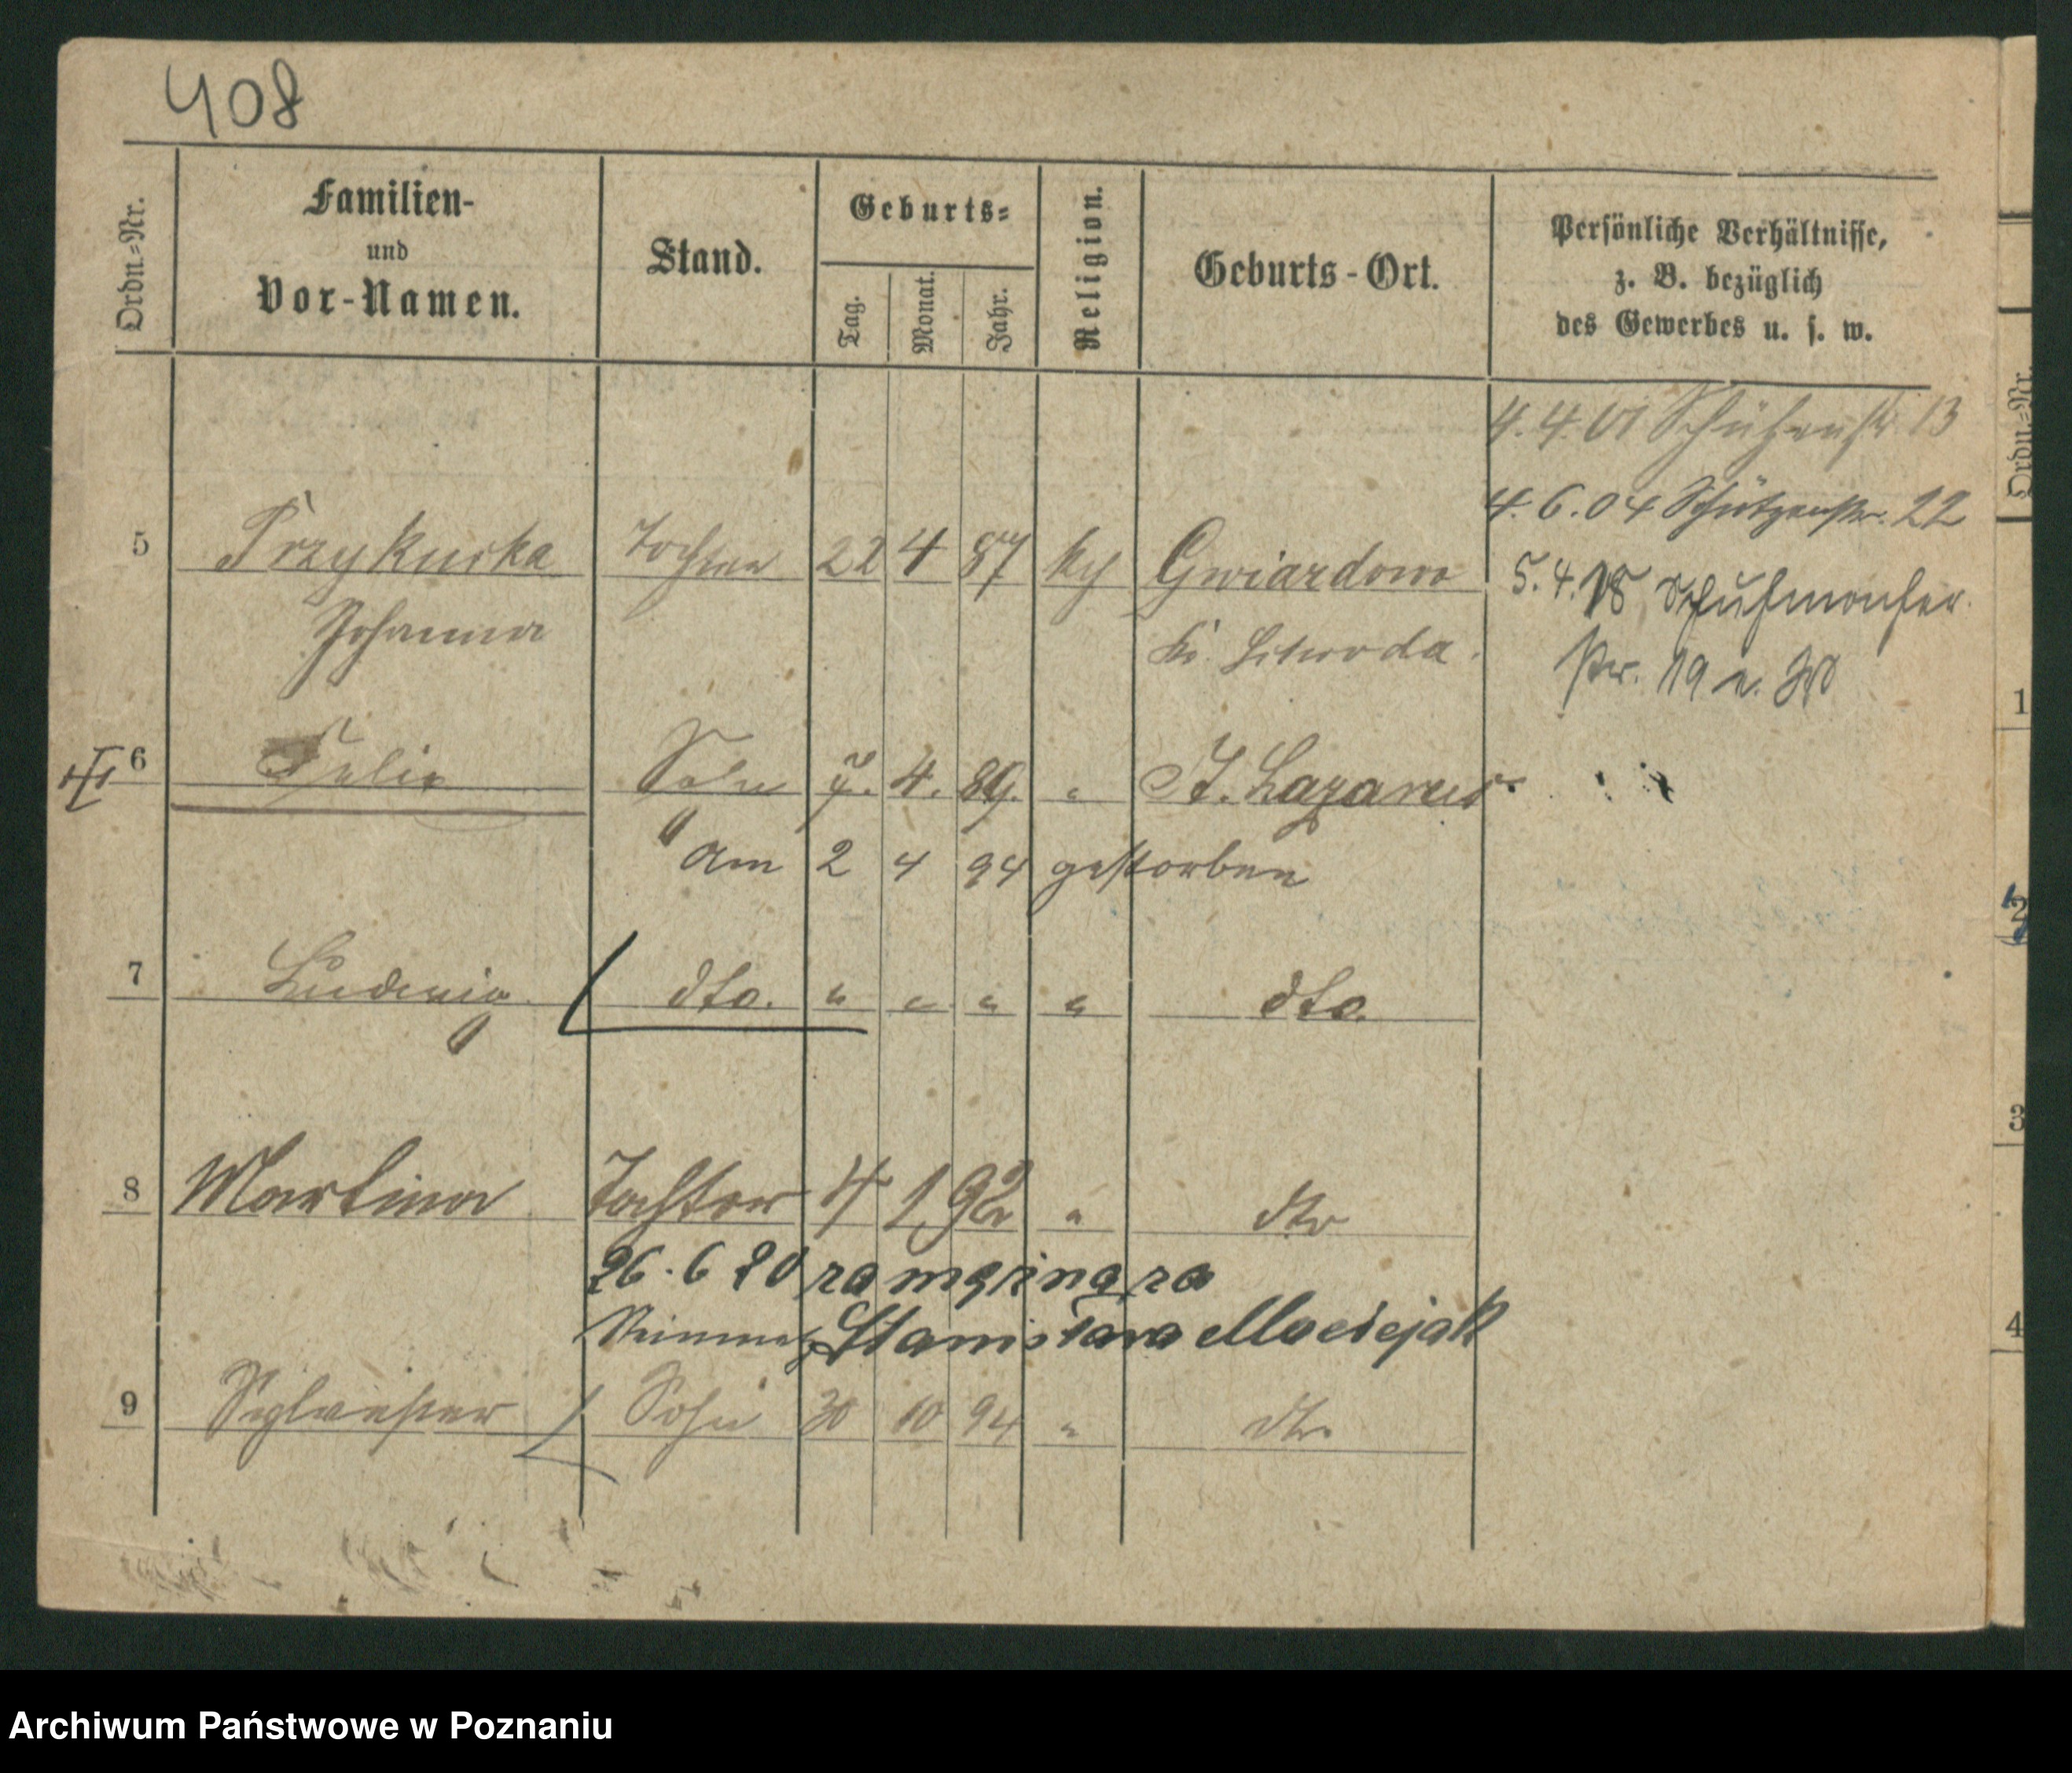 408
Ordn.=Nr.
Familien-
und
Vor-Namen.
Stand.
Geburts=
Tag.
Monat.
Jahr.
Religion.
Geburts-Ort.
Persönliche Verhältnisse,
z. B. bezüglich
des Gewerbes u. s. w.
4. 4. 01 Schützenstr. 13
4. 6. 04 Schützenstr. 22
5 Przykucka Tochter 22 4 87 kg Gwiazdowo
5. 4. 18
Johanna Kr. Schroda.
str. 19
6 Felix Sohn 7. 4. 89. " St. Lazarus
am 2 4 94 gestorben
7 Ludwig dto. " " " " dto.
8 Martina Tochter 4 1 92 " dto
26. 6 20 zamężna za
Stanisława Maciejak
9 Sylvester Sohn 30 10 94 " dto.
Ordn.=Nr.
1
2
3
4
Archiwum Państwowe w Poznaniu